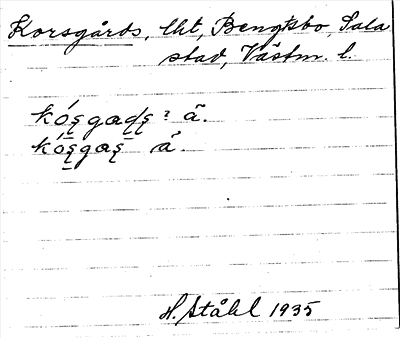 Korsgårds, lht, Bengtsbo, Sala
stad, Västm. l.
kо́s̨gad̨s̨ ? ã.
kо́s̨gas̨ å.
H. Ståhl 1935